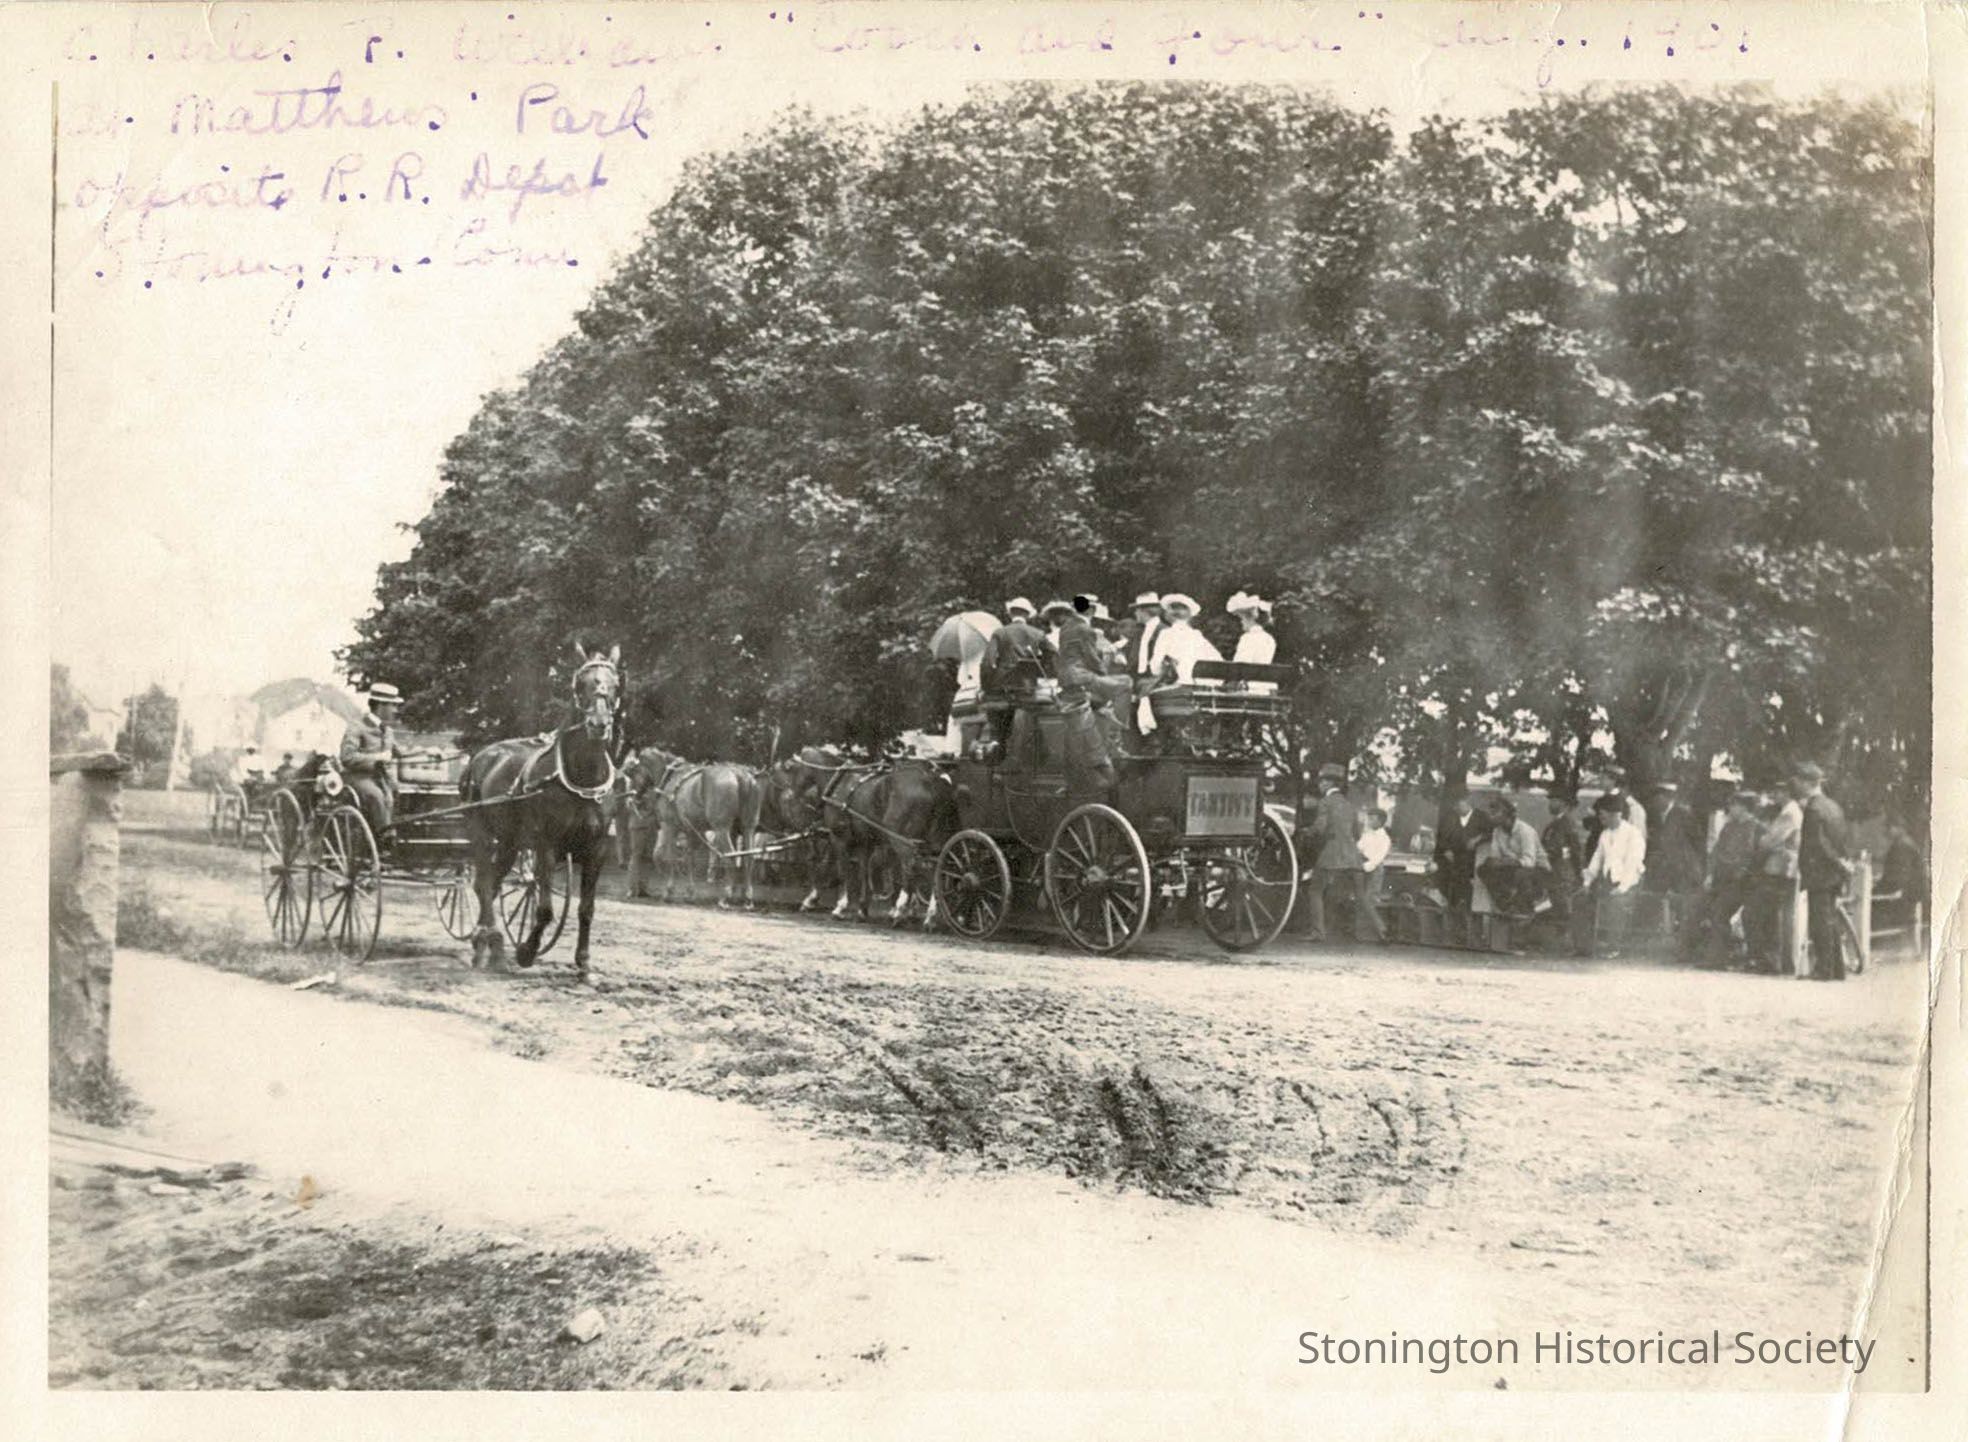 Charles P. Williams' "Coach and Four" Aug. 1901
at Matthews' Park
opposite R. R. Depot
Stonington Conn
TANTIVY
Stonington Historical Society